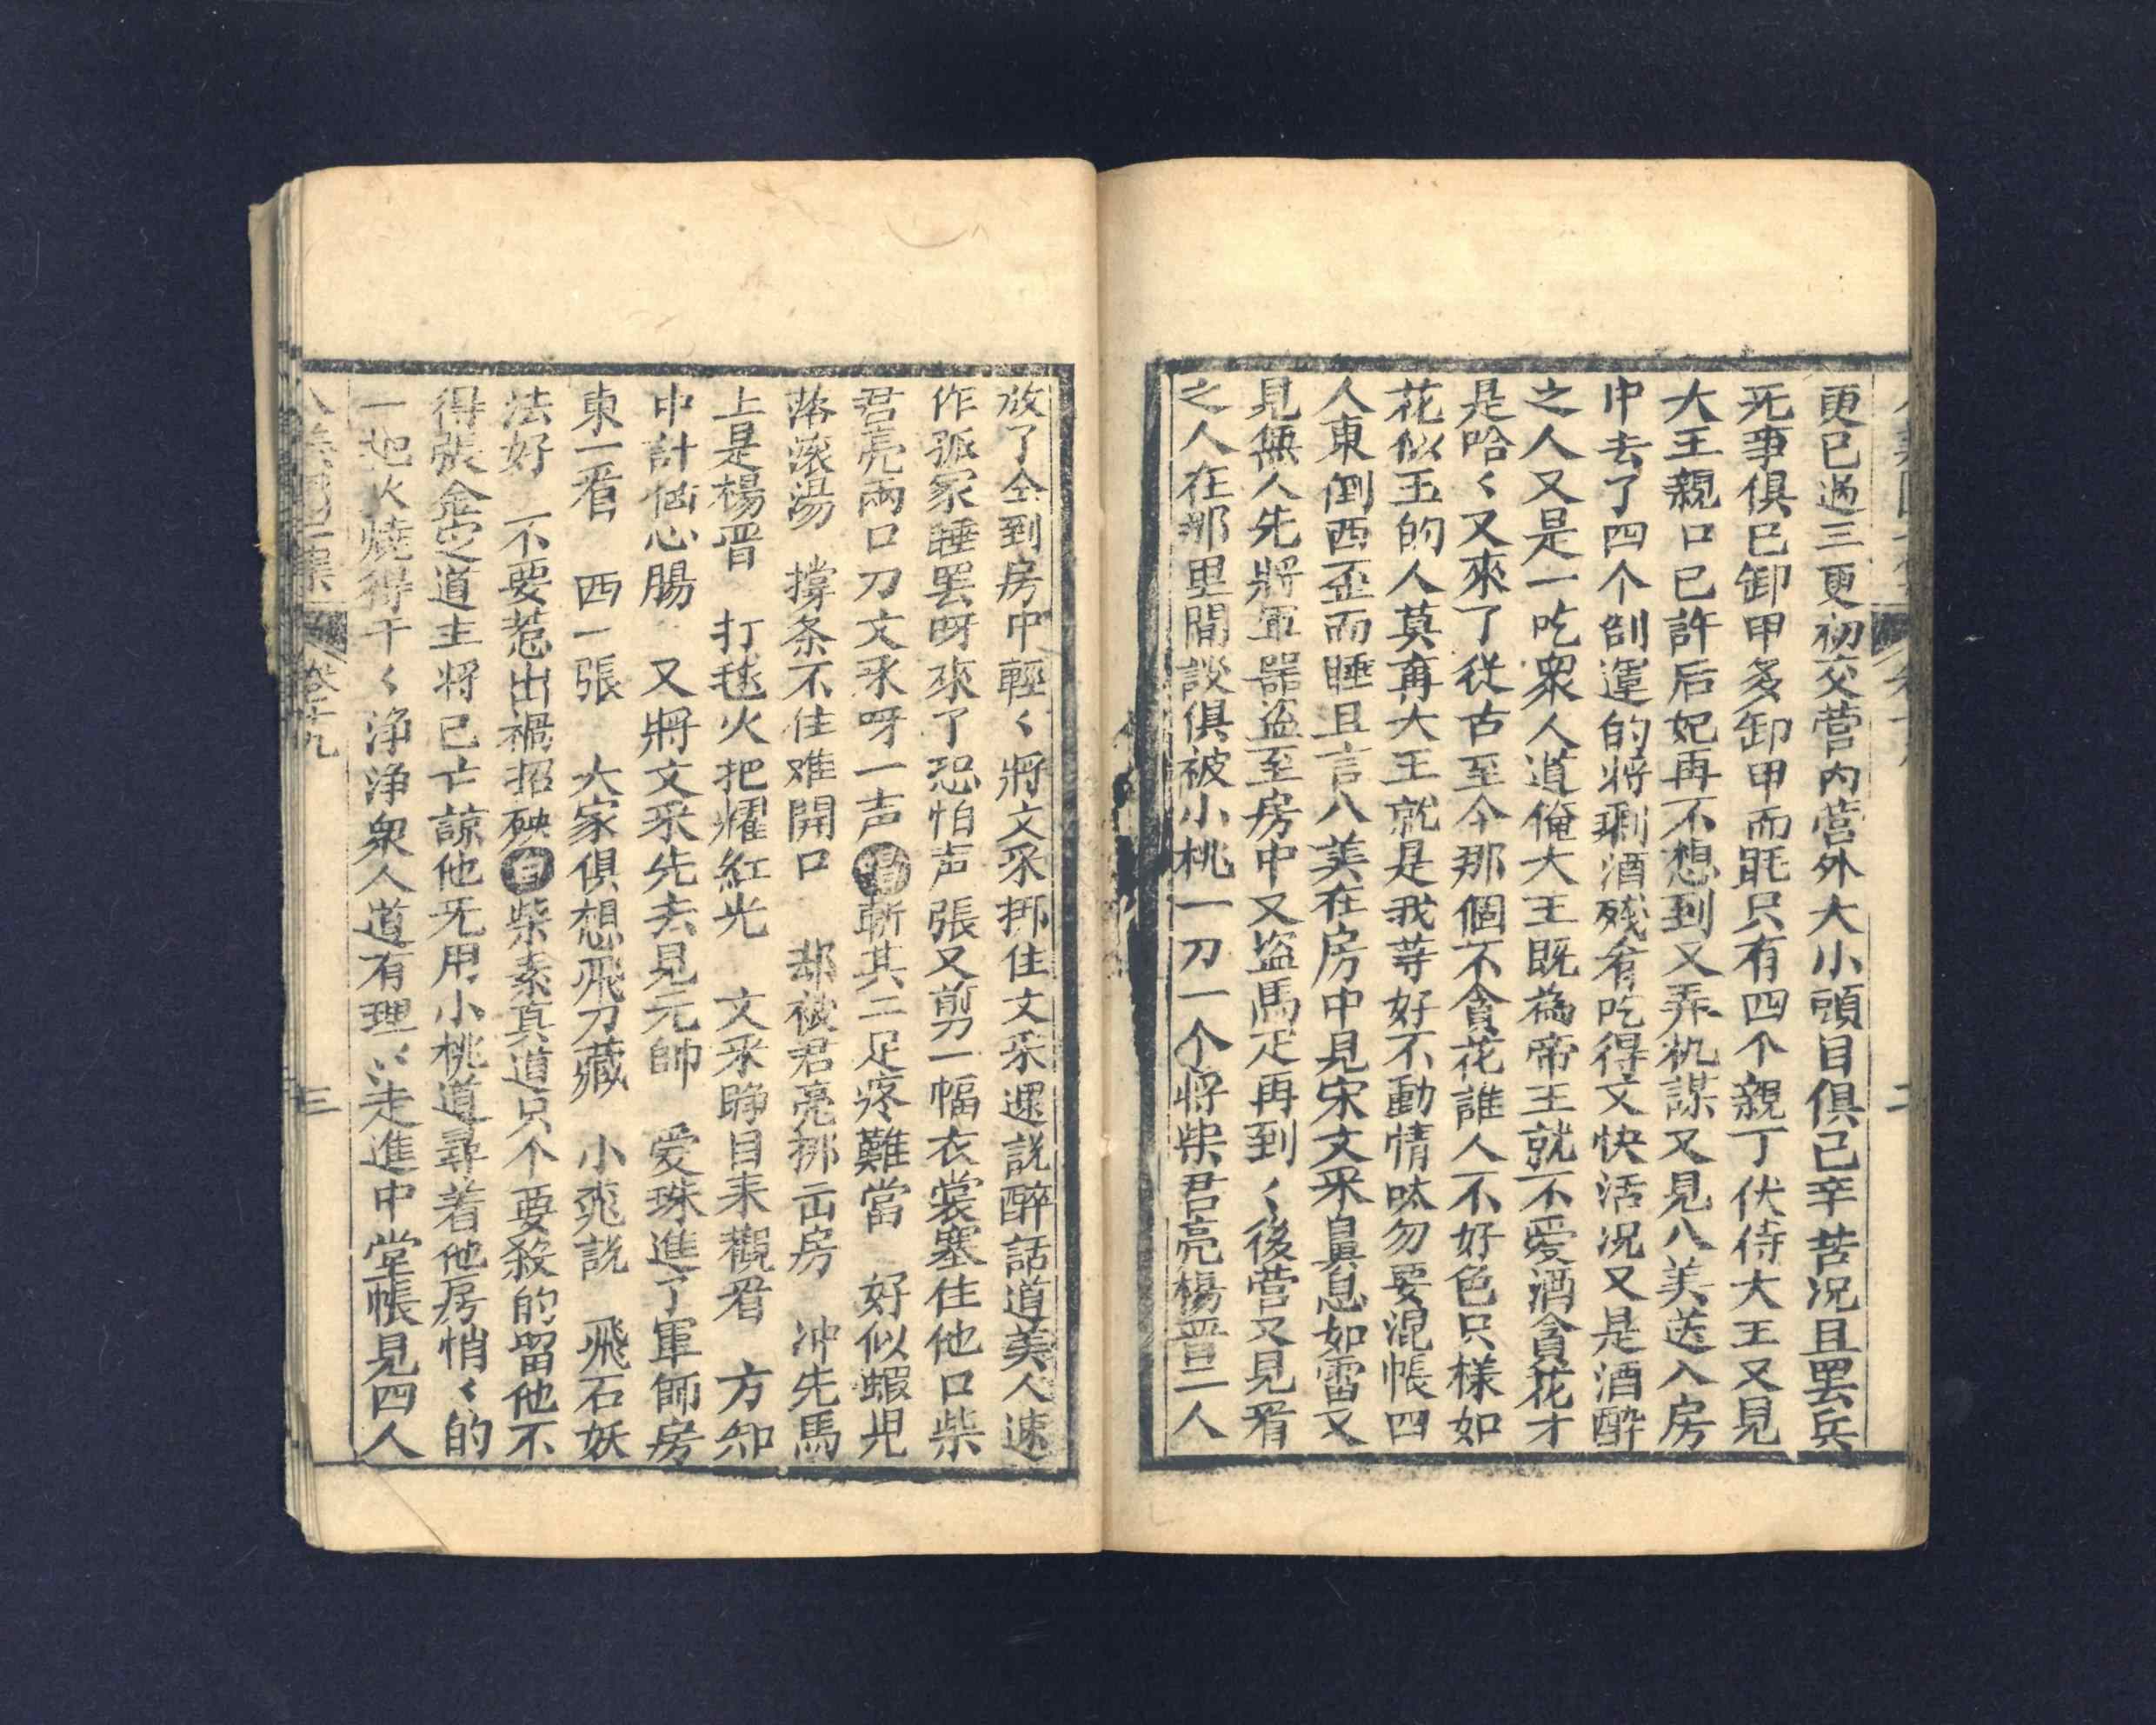 更已過三更初交营内营外大小頭目俱已辛苦况且罢兵
死事俱已卸甲多卸甲而眠只有四个親丁伏侍大王又見
大王親口已許后妃再不想到又弄机謀又見八美送入房
中去了四个刽運的将剩酒残肴吃得文快活况又是酒醉
之人又是一吃衆人道俺大王既為帝王就不爱酒貪花才
是哈〻又來了従古至今那個不貪花誰人不好色只様如
花似玉的人莫再大王就是我等好不動情呔勿要混帳四
人東倒西歪而睡且言八美在房中見宋文采鼻息如雷又
見無人先將軍器盗至房中又盗馬疋再到〻後营又見看
之人在那里閒談俱被小桃一刀一个将柴君亮楊晋二人
放了仝到房中輕〻將文采挷住文采還説醉話道美人速
作孤家睡罢呀來了恐怕声張又剪一幅衣裳塞住他口柴
君亮兩口刀文采呀一声唱斬其二足疼難當 好似蝦児
落滚湯 撐条不住难開口 却被君亮挷出房 冲先馬
上是楊晋 打毬火把耀紅光 文采睁目来觀看 方知
中計恼心腸 又將文采先去見元帥 爱珠進了軍師房
東一看 西一張 大家俱想飛刀藏 小桃説 飛石妖
法好 不要惹出禍招殃白柴素真道只个要殺的留他不
得張金定道主将已亡諒他无用小桃道尋着他房悄〻的
一把火燒得干〻浄浄衆人道有理〻走進中堂帳見四人
卷十九
三